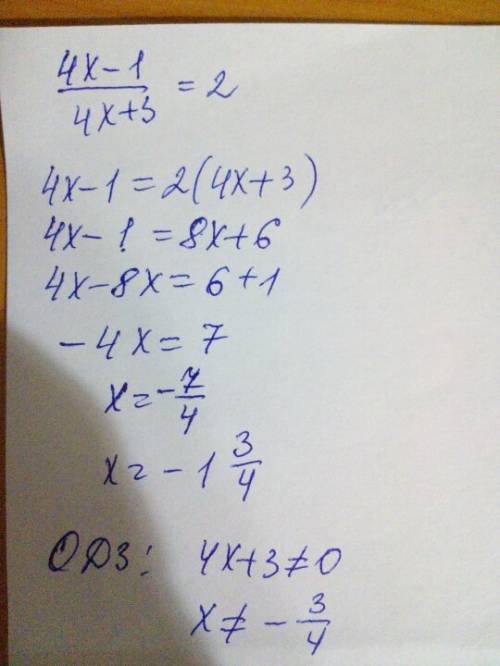 (4x-1)/(4x+3) = 2
4x-1=2(4x+3)
4x-1=8x+6
4x-8x=6+1
-4x=7
x=-7/4
x=-1 3/4
ОДЗ: 4x+3≠0
x≠-3/4